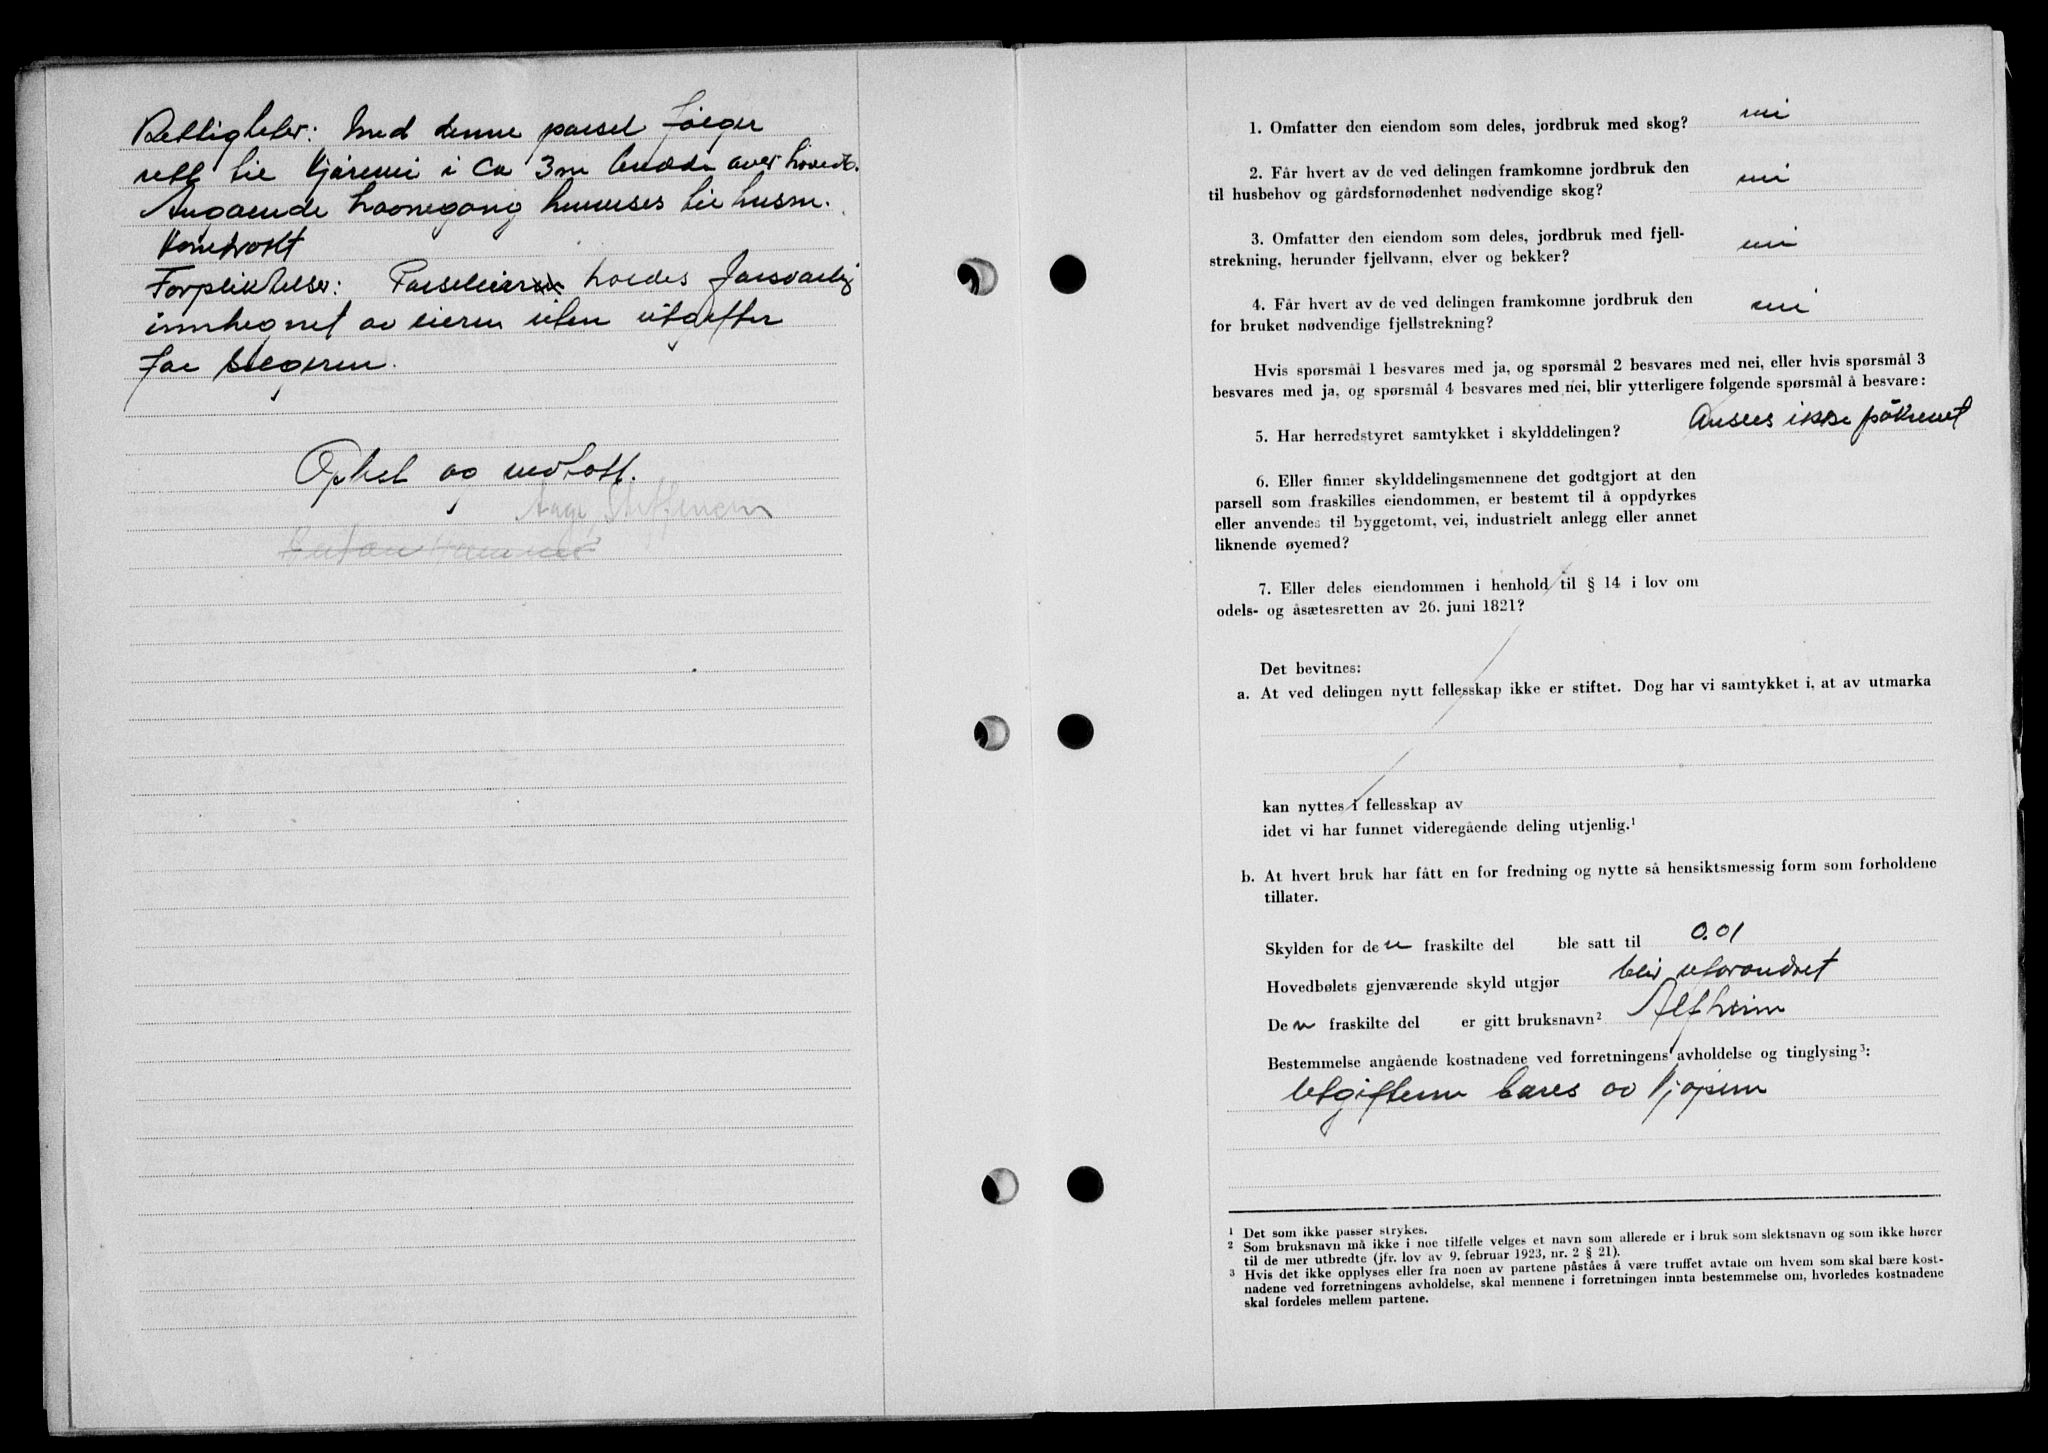 Rettigheter: Med denne parsel følger
rett til kjørevei i ca 3m bredde over hovedb.
Angående havnegang henvises til husm.
kontrakt
Forpliktelser: Parseleieren holdes forsvarlig
innhegnet av eieren uten utgifter
for selgeren.
Oplest og vedtatt.
Aage Steffensen
1. Omfatter den eiendom som deles, jordbruk med skog? nei
2. Får hvert av de ved delingen framkomne jordbruk den
til husbehov og gårdsfornødenhet nødvendige skog? nei
3. Omfatter den eiendom som deles, jordbruk med fjell-
strekning, herunder fjellvann, elver og bekker? nei
4. Får hvert av de ved delingen framkomne jordbruk den
for bruket nødvendige fjellstrekning? nei
Hvis spørsmål 1 besvares med ja, og spørsmål 2 besvares med nei, eller hvis spørsmål 3
besvares med ja, og spørsmål 4 besvares med nei, blir ytterligere følgende spørsmål å besvare:
5. Har herredstyret samtykket i skylddelingen? Ansees ikke påkrevet
6. Eller finner skylddelingsmennene det godtgjort at den
parsell som fraskilles eiendommen, er bestemt til å oppdyrkes
eller anvendes til byggetomt, vei, industrielt anlegg eller annet
liknende øyemed?
7. Eller deles eiendommen i henhold til § 14 i lov om
odels- og åsætesretten av 26. juni 1821?
Det bevitnes:
a. At ved delingen nytt fellesskap ikke er stiftet. Dog har vi samtykket i, at av utmarka
kan nyttes i fellesskap av
idet vi har funnet videregående deling utjenlig.¹
b. At hvert bruk har fått en for fredning og nytte så hensiktsmessig form som forholdene
tillater.
Skylden for den fraskilte del ble satt til 0.01
Hovedbølets gjenværende skyld utgjør blir uforandret
Den fraskilte del er gitt bruksnavn² Alfheim
Bestemmelse angående kostnadene ved forretningens avholdelse og tinglysing³:
Utgiftene bæres av kjøperen
¹ Det som ikke passer strykes.
² Som bruksnavn må ikke i noe tilfelle velges et navn som allerede er i bruk som slektsnavn og som ikke hører
til de mer utbredte (jfr. lov av 9. februar 1923, nr. 2 § 21).
³ Hvis det ikke opplyses eller fra noen av partene påståes å være truffet avtale om hvem som skal bære kost-
nadene ved forretningens avholdelse, skal mennene i forretningen innta bestemmelse om, hvorledes kostnadene
skal fordeles mellem partene.